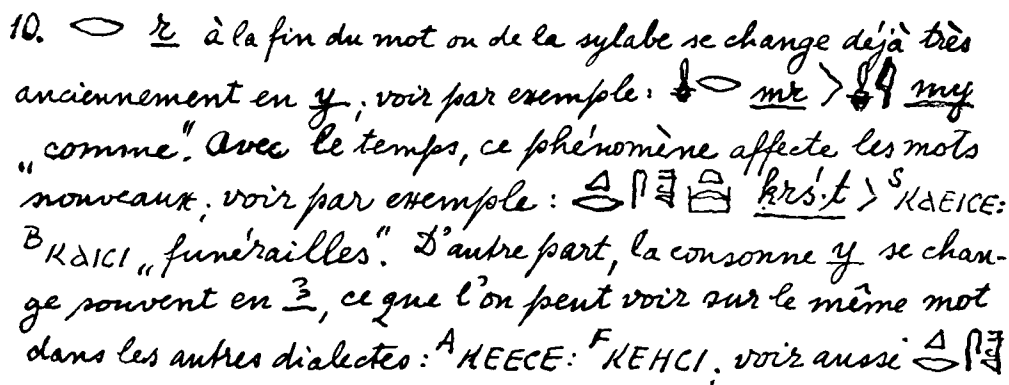 10. 𓂋 r à la fin du mot ou de la sylabe se change déjà très
anciennement en y; voir par exemple: 𓌻𓂋 mr > 𓌻𓇋 my
„comme". Avec le temps, ce phénomène affecte les mots
nouveaux; voir par exemple: ḳrś.t > ˢⲕⲁⲉⲓⲥⲉ:
ᴮⲕⲁⲓⲥⲓ „funérailles". D'autre part, la consonne y se chan-
ge souvent en ꜣ, ce que l'on peut voir sur le même mot
dans les autres dialectes: ᴬⲕⲉⲉⲥⲉ: ꟳⲕⲉⲏⲥⲓ; voir aussi